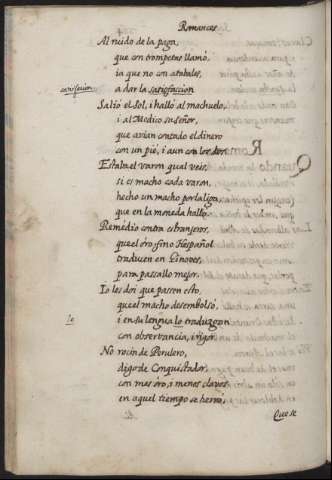 Romances
Al ruido de la paga,
que con trompetas llamò,
ia que no con atabales,
a dar la satisfaccion
Saliò el Sol, i hallò al machuelo,
i al Medico su señor,
que avian contado el dinero
con un piè, i aun con los dos.
Estaba el varon qual veis,
si es macho cada varon,
hecho un macho por la liga
que en la moneda hallò.
Remedio contra estrangeros,
que el oro fino Español
traducen en Ginoves,
para passallo mejor.
Io les doi que passen esto,
que el macho desembolsò,
le
i en su lengua lo traduzgan
con observancia, i rigor.
No rocin de Perulero,
digo de Conquistador,
con mas oro, i menos clavos
en aquel tiempo se herrò,
Que se